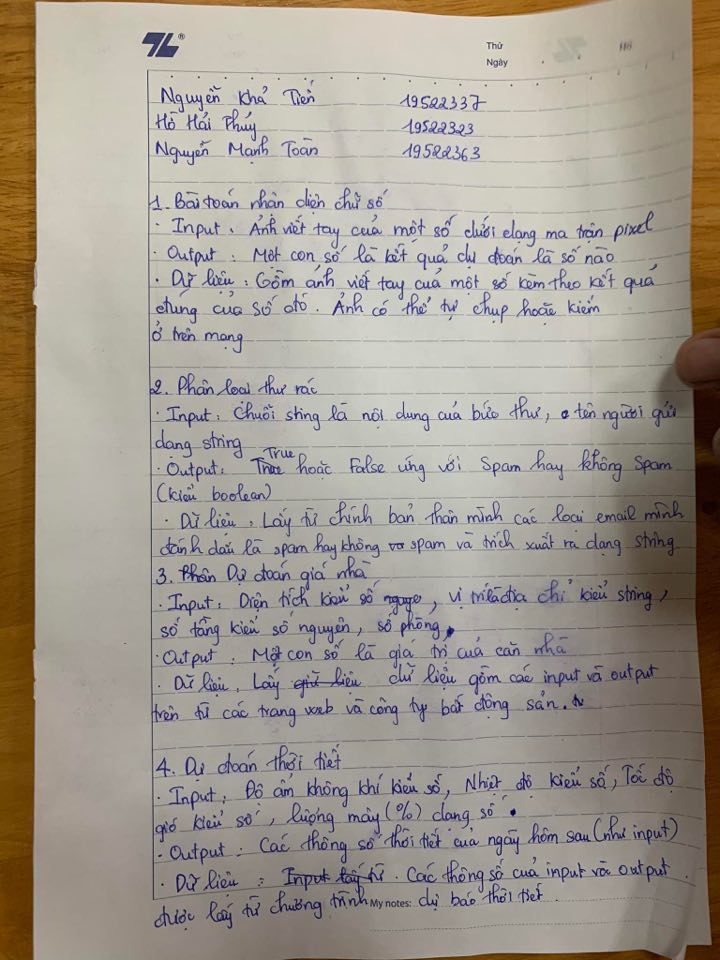 TL®
Thứ
Ngày
Nguyễn Khả Tiến 19522337
Hồ Hải Thủy 19522323
Nguyễn Mạnh Toàn 19522363
1. Bài toán nhận diện chữ số
· Input : Ảnh viết tay của một số dưới dạng ma trận pixel
· Output : Một con số là kết quả dự đoán là số nào
· Dữ liệu : Gồm ảnh viết tay của một số kèm theo kết quả
đúng của số đó. Ảnh có thể tự chụp hoặc kiếm
ở trên mạng
2. Phân loại thư rác
· Input : Chuỗi sting là nội dung của bức thư, tên người gửi
dạng string
· Output : True hoặc False ứng với Spam hay không Spam
(kiểu boolean)
· Dữ liệu : Lấy từ chính bản thân mình các loại email mình
đánh dấu là spam hay không spam và trích xuất ra dạng string
3. Dự đoán giá nhà
· Input : Diện tích kiểu số, vị trí là địa chỉ kiểu string,
số tầng kiểu số nguyên, số phòng.
· Output : Một con số là giá trị của căn nhà
· Dữ liệu : Lấy dữ liệu gồm các input và output
trên từ các trang web và công ty bất động sản.
4. Dự đoán thời tiết
· Input : Độ ẩm không khí kiểu số, Nhiệt độ kiểu số, Tốc độ
gió kiểu số, lượng mây (%) dạng số.
· Output : Các thông số thời tiết của ngày hôm sau (như input)
· Dữ liệu : Các thông số của input và output
được lấy từ chương trình My notes: dự báo thời tiết.